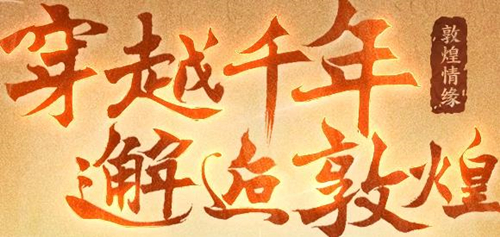 穿越千年
敦煌情缘
邂逅敦煌